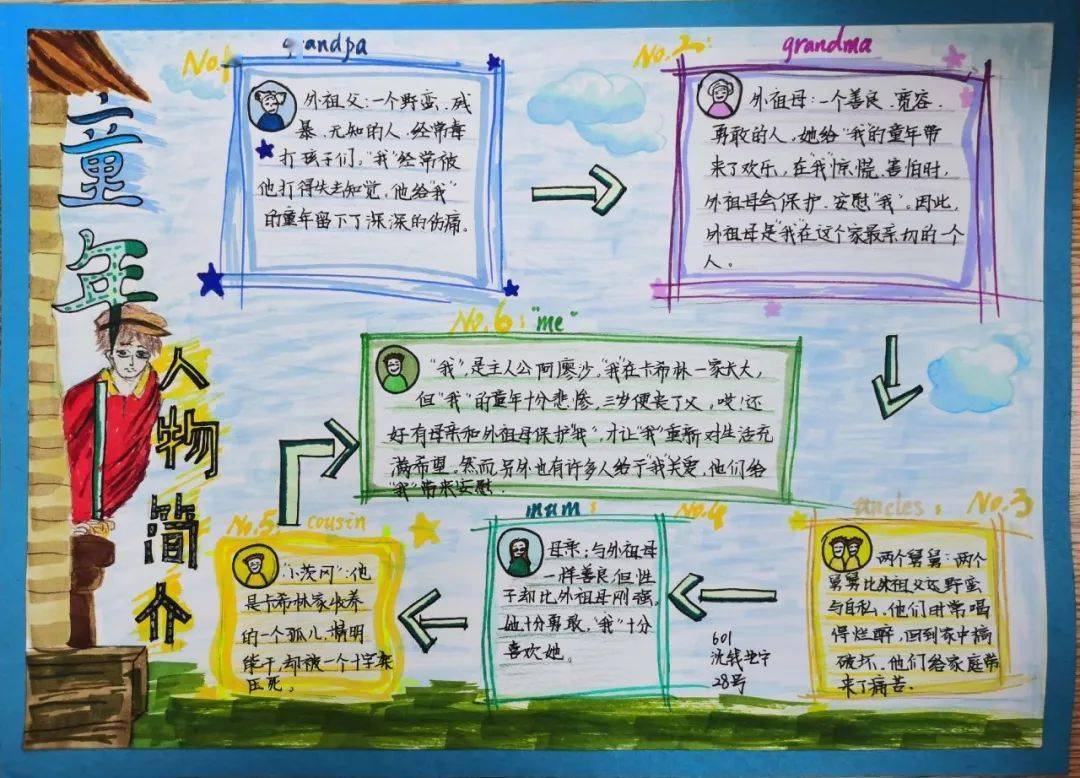 童年
人物简介
No.1
grandpa
外祖父：一个野蛮、残
暴、无知的人，经常毒
打孩子们。"我"经常被
他打得失去知觉，他给"我"
的童年留下了深深的伤痛。
No.2:
grandma
外祖母：一个善良、宽容、
勇敢的人，她给"我"的童年带
来了欢乐，在"我"惊慌、害怕时，
外祖母会保护、安慰"我"。因此，
外祖母是"我"在这个家最亲切的一个
人。
No.3
uncles:
两个舅舅：两个
舅舅比外祖父还野蛮
与自私，他们时常喝
得烂醉，回到家中搞
破坏，他们给家庭带
来了痛苦.
No.4
mum:
母亲：与外祖母
一样善良，但性
子却比外祖母刚强，
她十分勇敢，"我"十分
喜欢她。
No.5:
cousin
"小茨冈"：他
是卡希林家收养
的一个孤儿，精明
能干，却被一个十字架
压死。
No.6:"me"
"我"，是主人公阿廖沙，"我"在卡希林一家长大，
但"我"的童年十分悲惨，三岁便丧了父，哎！还
好有母亲和外祖母保护"我"，才让"我"重新对生活充
满希望。然而另外也有许多人给予"我"关爱，他们给
"我"带来安慰.
601
28号